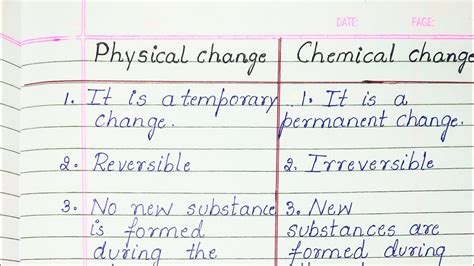 DATE: PAGE:
Physical change Chemical change
1. It is a temporary 1. It is a
change. permanent change.
2. Reversible 2. Irreversible
3. No new substance 3. New
is formed substances are
during the formed during